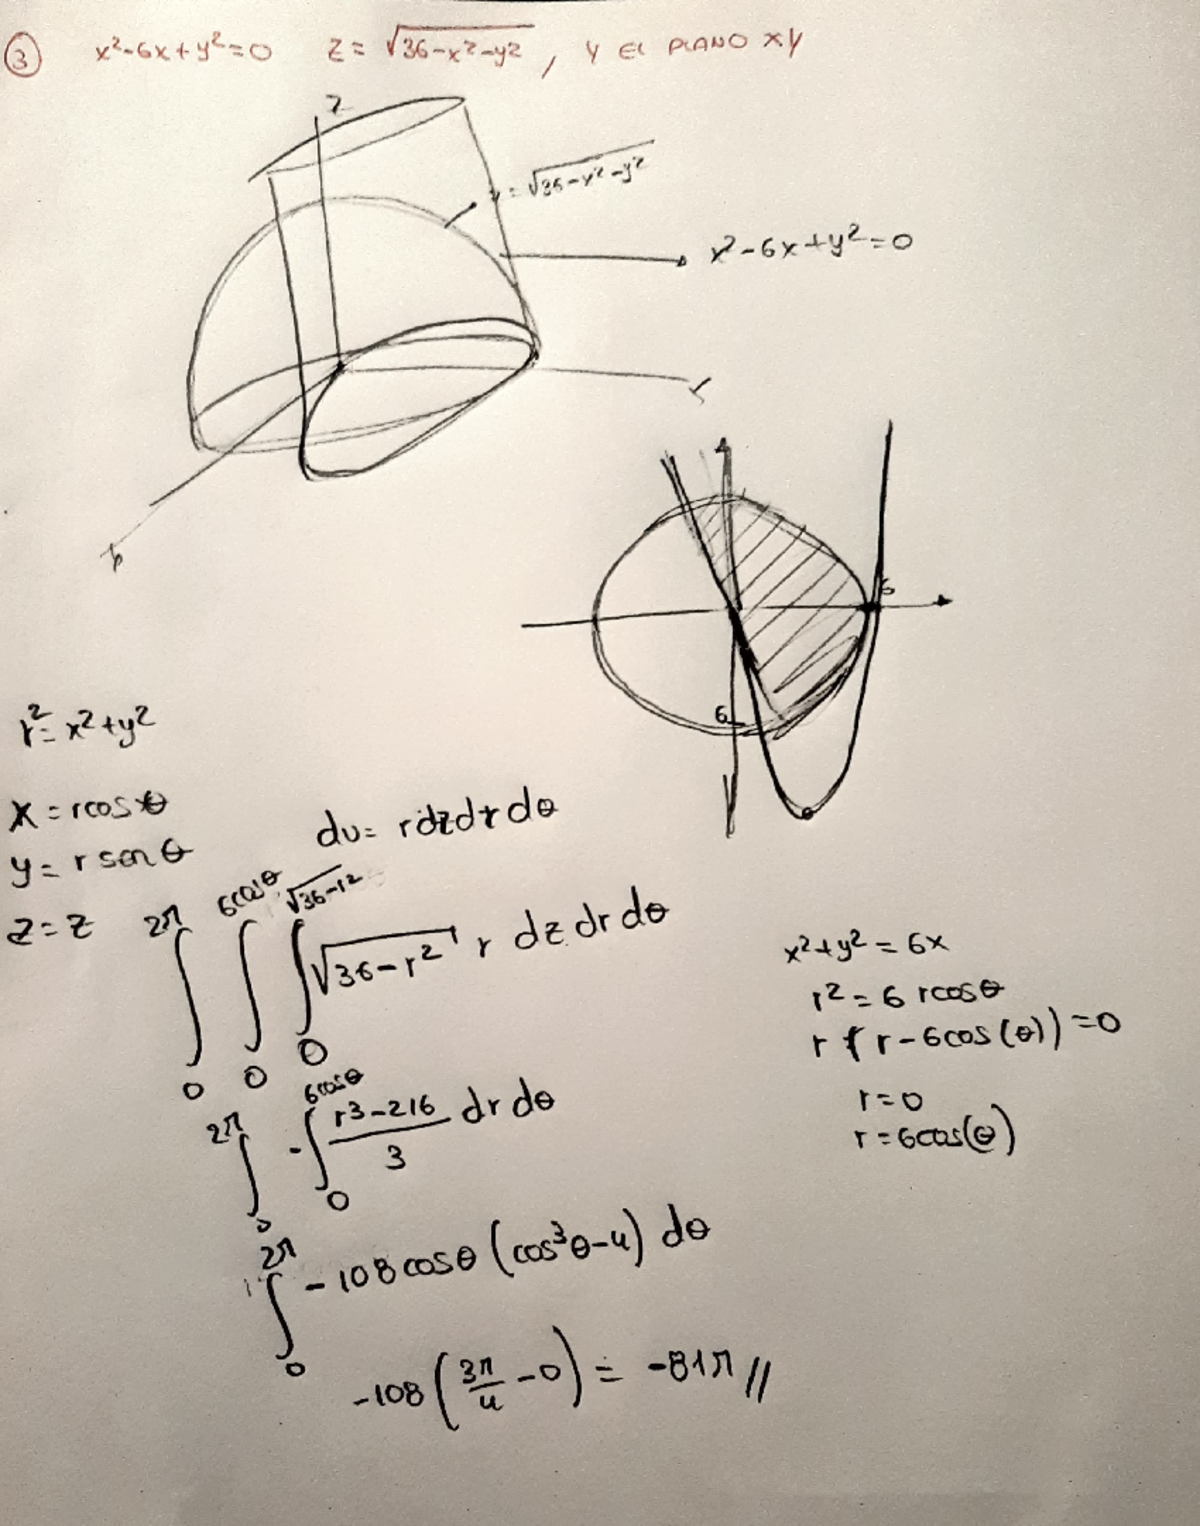 ③ x²-6x+y²=0 z=√36-x²-y², Y EL PLANO XY
z
=√36-x²-y²
x²-6x+y²=0
6
6
r²=x²+y²
x=rcosθ
y=r senθ
z=z
dv= rdzdrdθ
∫₀^2π ∫₀^6cosθ ∫₀^√36-r² √36-r² r dz dr dθ
∫₀^2π -∫₀^6cosθ (r³-216)/3 dr dθ
∫₀^2π -108cosθ (cos³θ-4) dθ
-108 (3π/4 -0) = -81π //
x²+y²=6x
r²=6 rcosθ
r(r-6cos(θ))=0
r=0
r=6cos(θ)